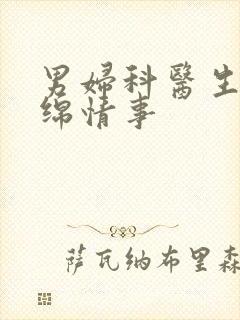 男婦科醫生
綿情事
萨瓦纳布里森